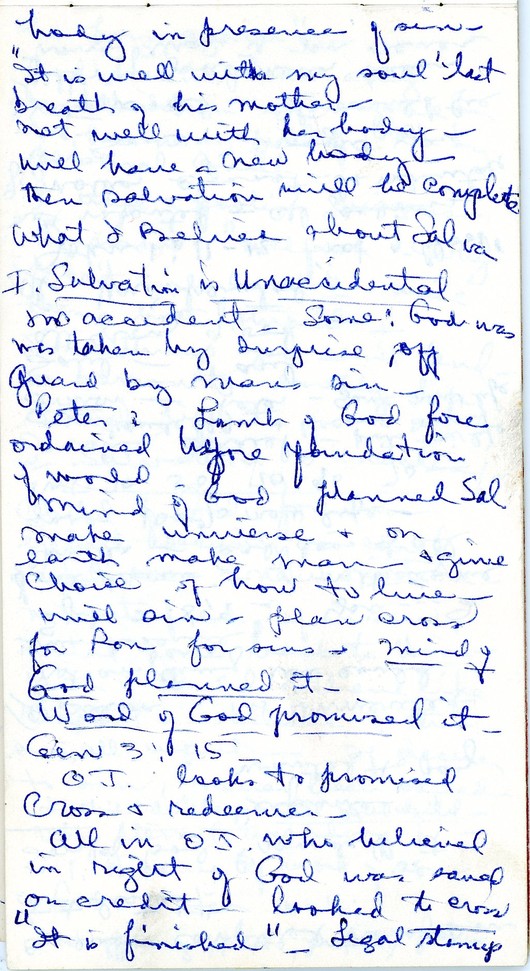 body in presence of sin-
"It is well with my soul" last
breath of his mother-
not well with her body-
will have a new body-
then salvation will be complete
What I Believe about Salva
I. Salvation is Unaccidental
no accident - Some: God was
was taken by surprise, off
guard by man's sin-
Peter: Lamb of God fore
ordained before foundation
of world -
mind of God planned Sal
make universe + on
earth make man - + give
Choice of how to live-
until sin - plan cross
for for sins - Mind of
God planned it-
Word of God promised it-
Gen 3:15-
O.T. looks to promised
Cross + redeemer-
All in O.T. who believed
in right of God was saved
on credit - looked to cross
"It is finished" - Legal stamp